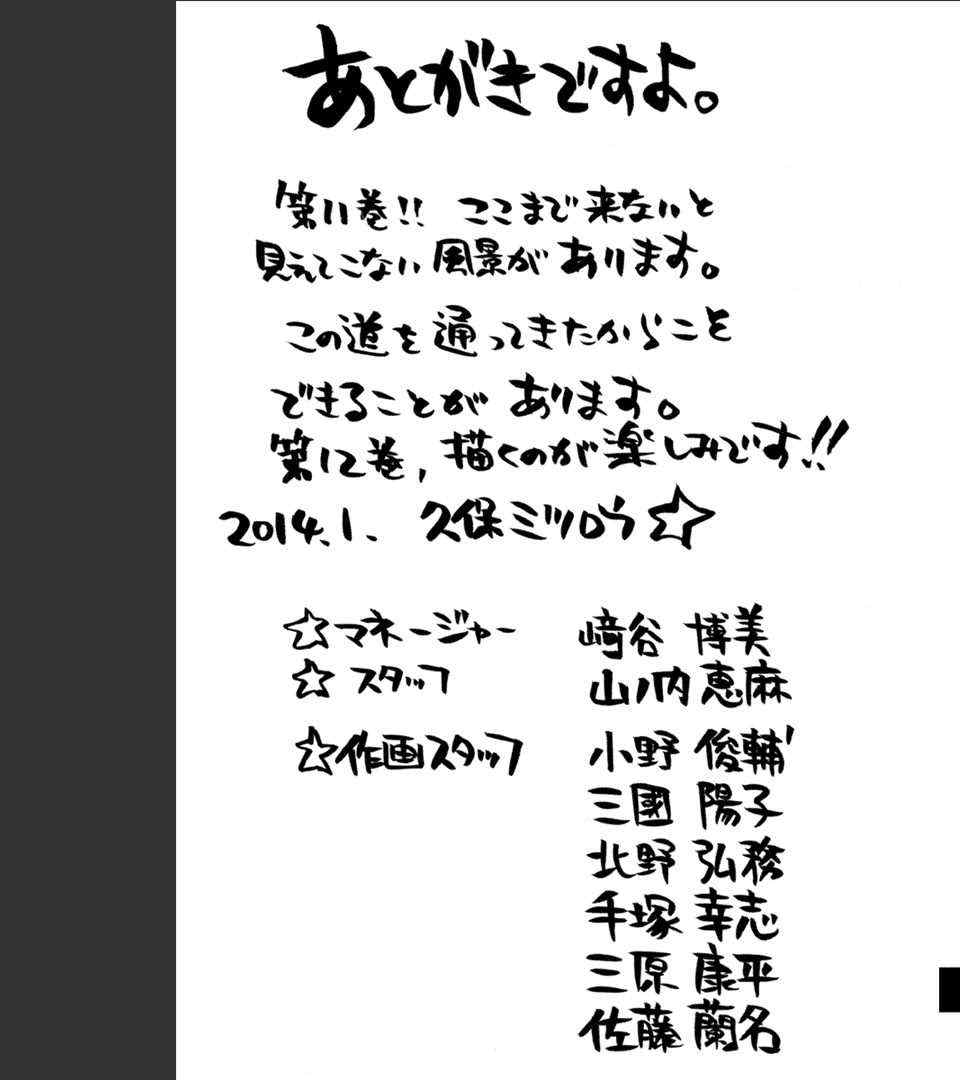 あとがきですよ。
第11巻!! ここまで来ないと
見えてこない風景があります。
この道を通ってきたからこと
できることが あります。
第12巻, 描くのが楽しみです!!
2014.1. 久保ミツロウ☆
☆マネージャー 﨑谷 博美
☆スタッフ 山ノ内 恵麻
☆作画スタッフ 小野 俊輔
三國 陽子
北野 弘務
手塚 幸志
三原 康平
佐藤 蘭名